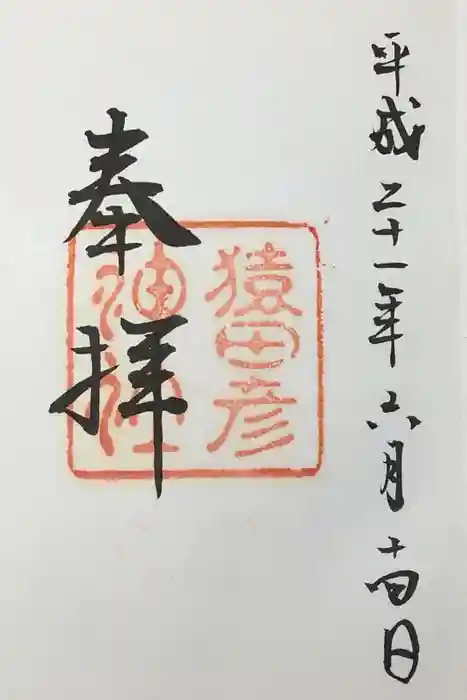 平成二十一年六月十四日
奉拝
猿田彦
神社